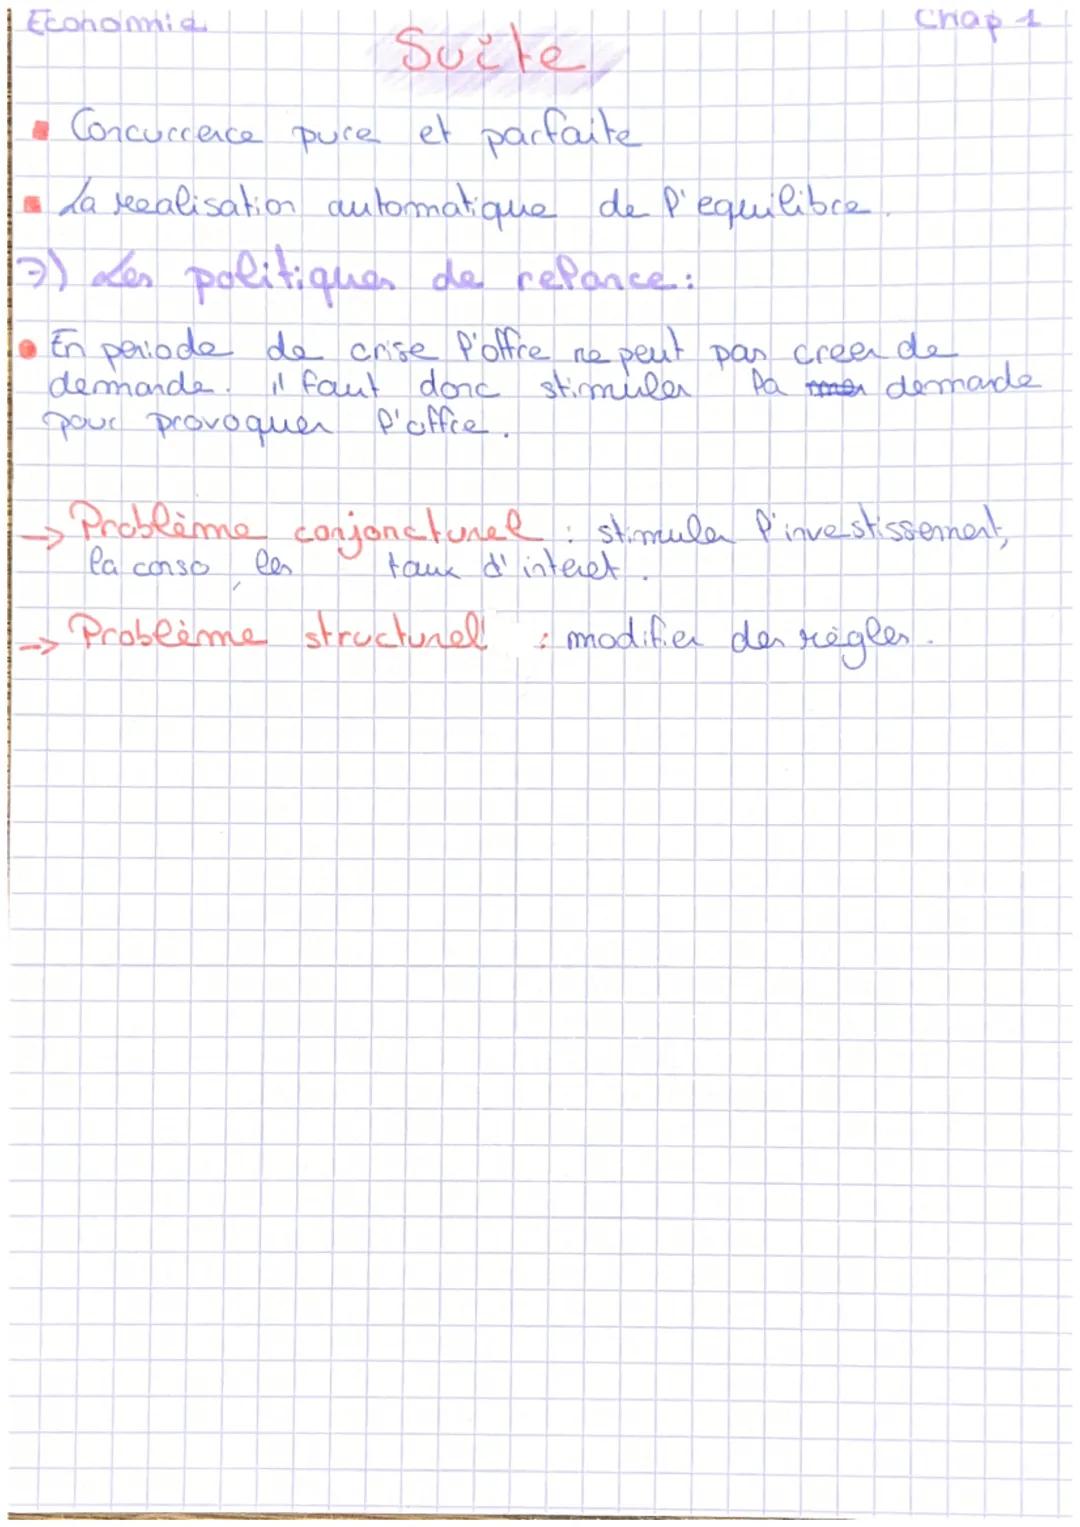 Economie Chap 1
Suite
▪ Concurrence pure et parfaite
▪ La realisation automatique de l'equilibre.
7) Les politiques de relance:
• En periode de crise l'offre ne peut pas creer de
demande. il faut donc stimuler la demande
pour provoquer l'offre.
→ Problème conjoncturel : stimuler l'investissement,
la conso, les taux d'interet.
→ Problème structurel : modifier des règles.